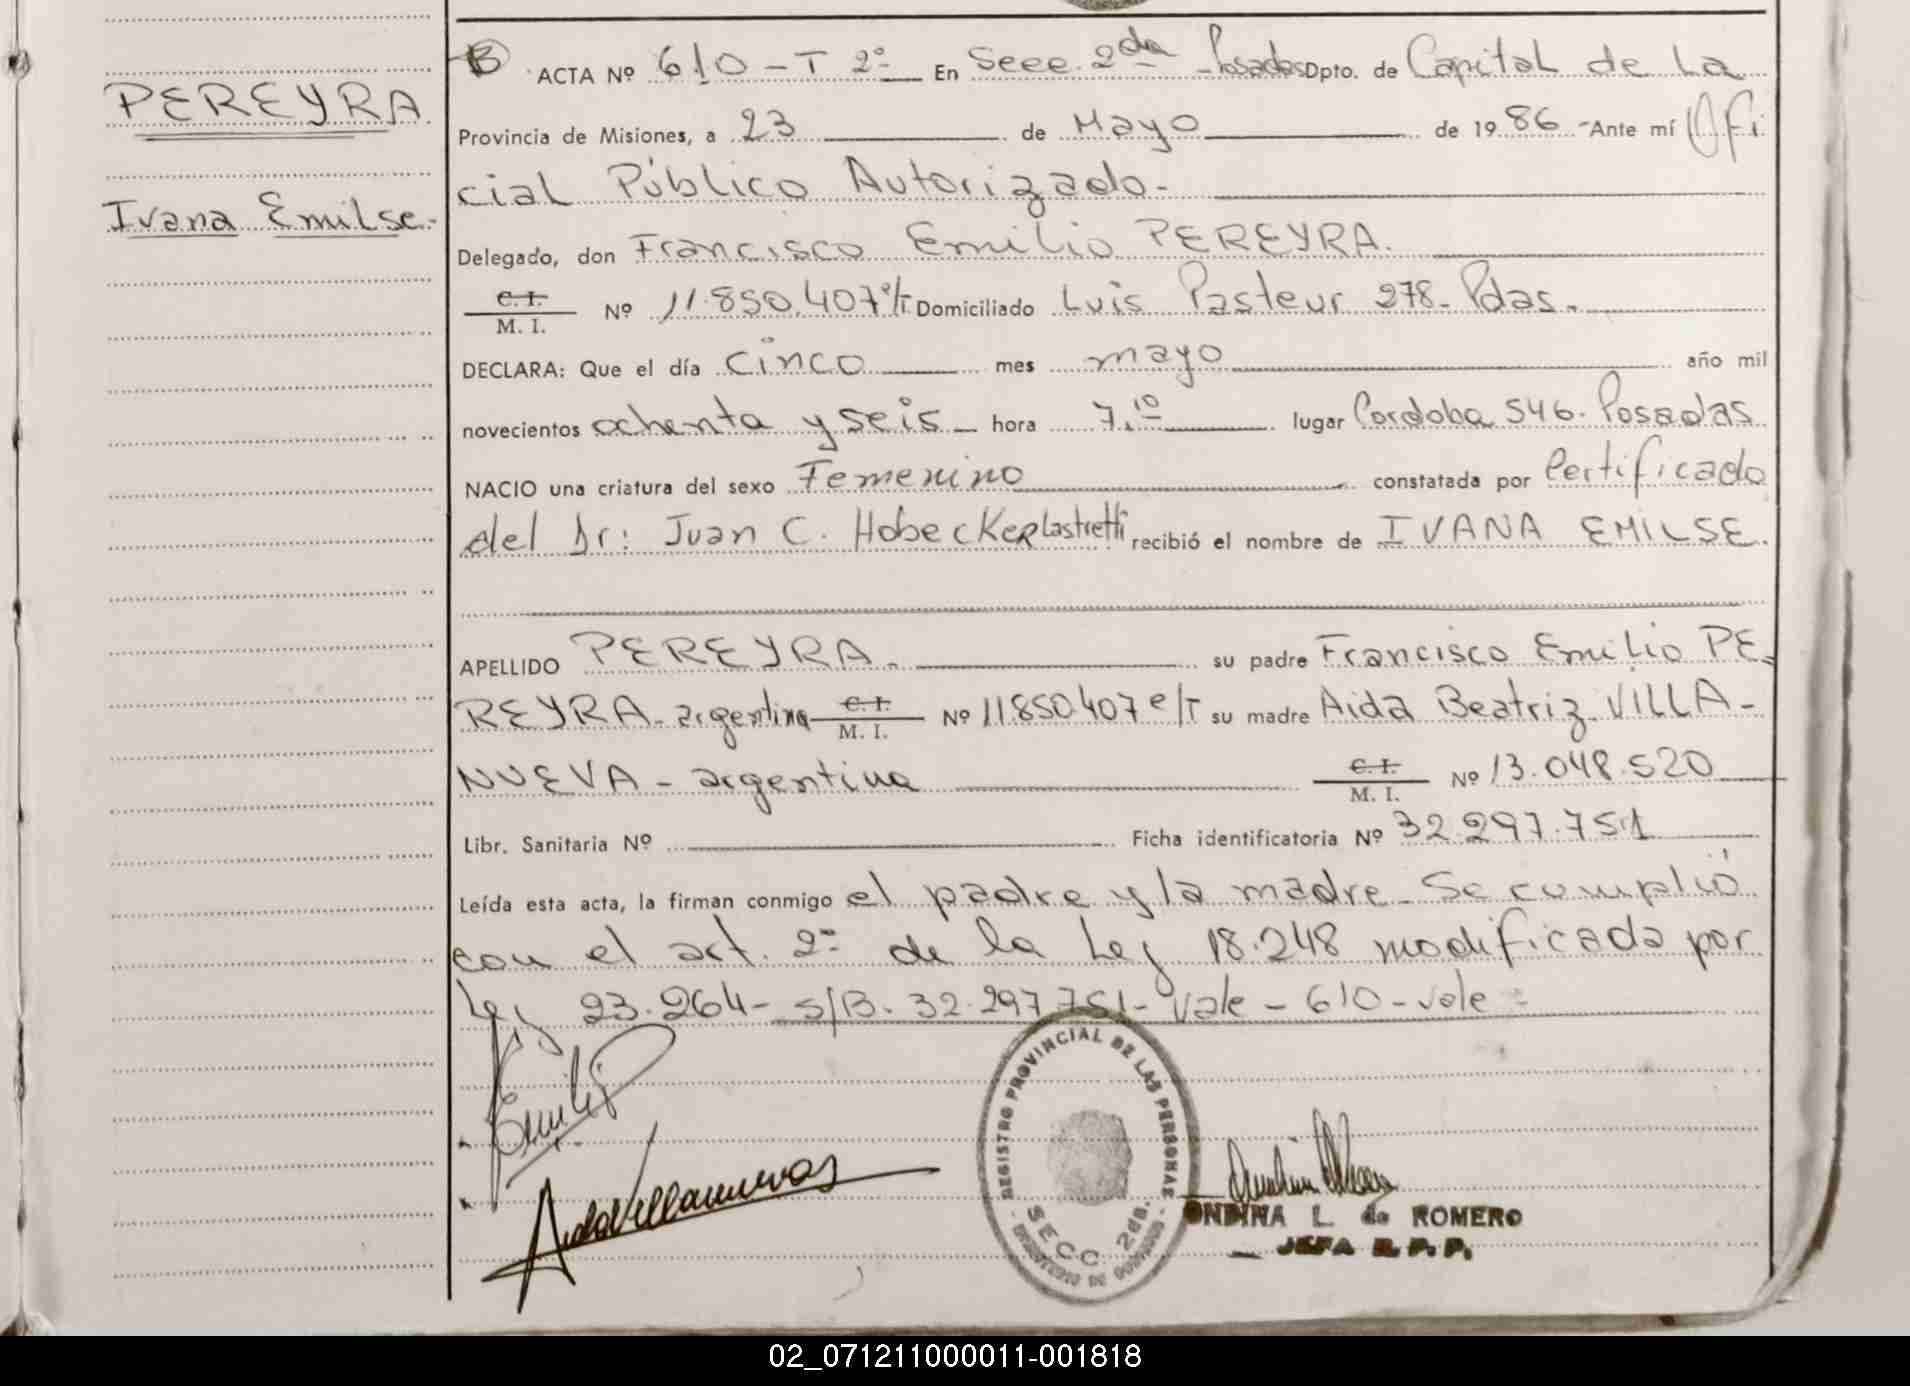 PEREYRA
Ivana Emilse.-
B ACTA Nº 610 - T 2º En Secc. 2da Posadas Dpto. de Capital de La
Provincia de Misiones, a 23 de Mayo de 1986 - Ante mí Ofi
cial Público Autorizado -
Delegado, don Francisco Emilio PEREYRA.
C. I. / M. I. Nº 11.850.407 e/T Domiciliado Luis Pasteur 278 - Pdas.
DECLARA: Que el día cinco mes mayo año mil
novecientos ochenta y seis - hora 7,10 lugar Cordoba 546. Posadas
NACIO una criatura del sexo Femenino constatada por Certificado
del Dr: Juan C. Hobecker Lastretti recibió el nombre de IVANA EMILSE.
APELLIDO PEREYRA. su padre Francisco Emilio PE-
REYRA - argentina C. I. / M. I. Nº 11850407 e/T su madre Aida Beatriz VILLA-
NUEVA - argentina C. I. / M. I. Nº 13.048.520
Libr. Sanitaria Nº Ficha identificatoria Nº 32.297.751
Leída esta acta, la firman conmigo el padre y la madre - Se cumplió
con el art. 2º de la Ley 18.248 modificada por
Ley 23.264 - S/B. 32.297.751 - Vale - 610 - vale -
Emilio P
Aida Villanueva
REGISTRO PROVINCIAL DE LAS PERSONAS
SECC. 2da.
ONDINA L. de ROMERO
JEFA R. P. P.
02_071211000011-001818